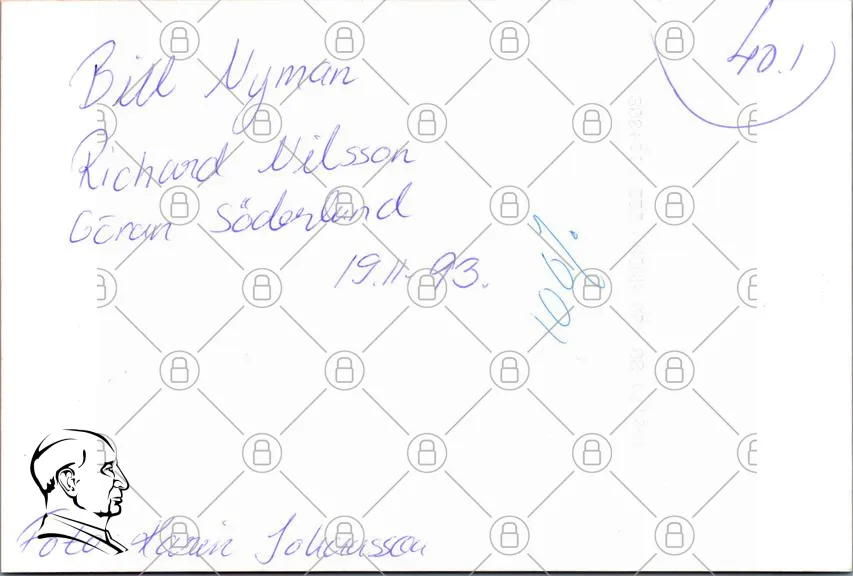 40.1
Bill Nyman
Richard Nilsson
Göran Söderlund
19.11-93.
100%
Foto Karin Johansson